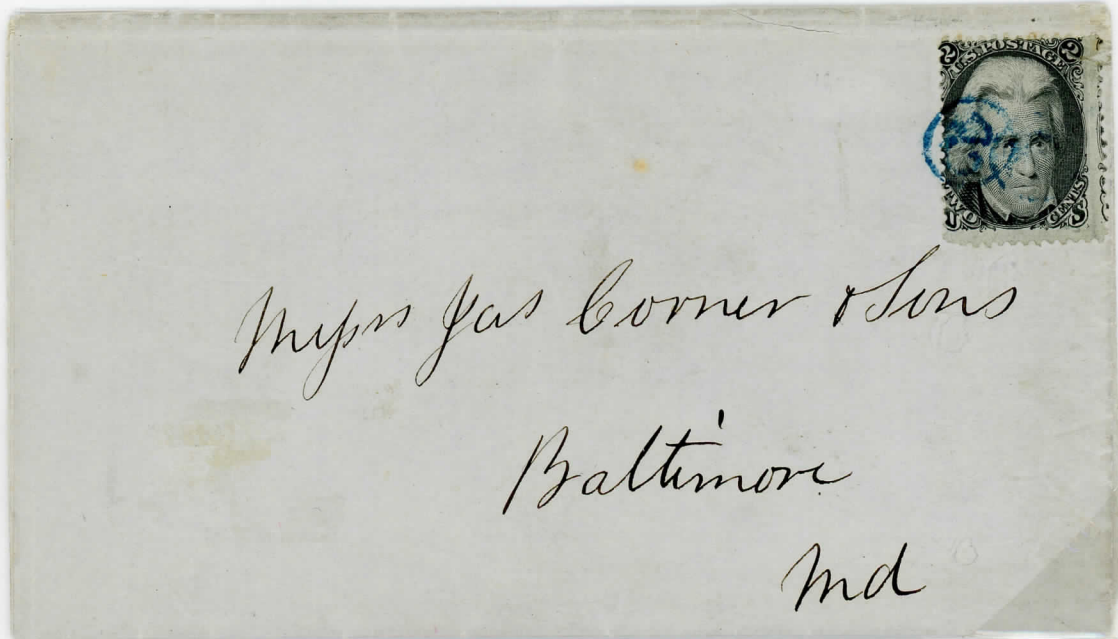 2 U.S. POSTAGE 2
TWO CENTS
Messrs Jas Corner & Sons
Baltimore
Md